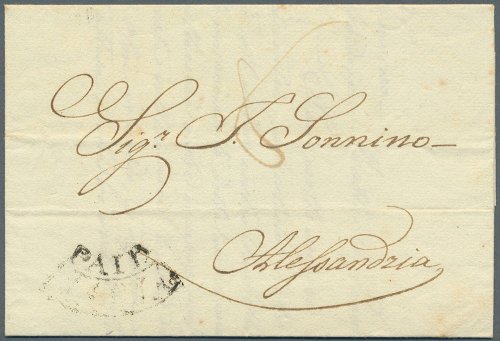 Sig.r I. Sonnino
Alessandria
PAID